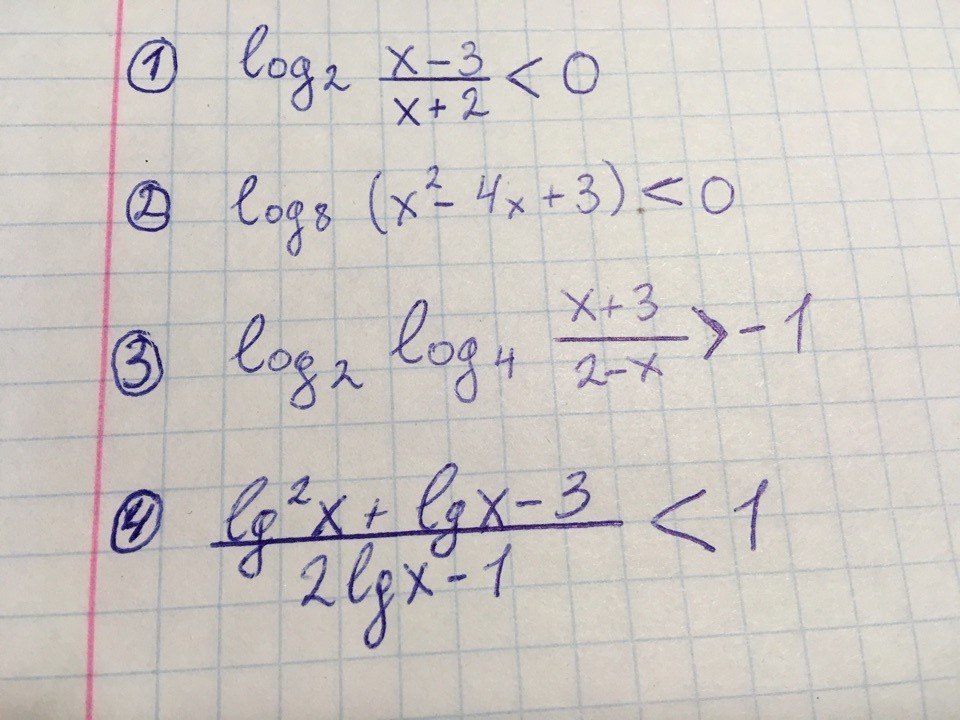 ① log₂ (x-3)/(x+2) < 0
② log₈ (x²-4x+3) < 0
③ log₂ log₄ (x+3)/(2-x) > -1
④ (lg²x + lgx - 3)/(2lgx - 1) < 1